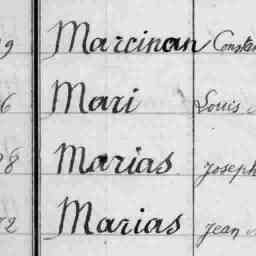 9 Marcinan Constan
6 Mari Louis
8 Marias Joseph
2 Marias Jean